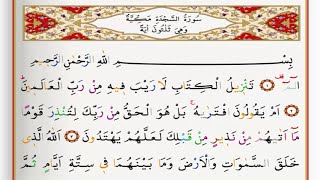 سُورَةُ السَّجْدَةِ مَكِّيَّةٌ
وَهِيَ ثَلٰثُونَ اٰيَةً
بِسْمِ اللّٰهِ الرَّحْمٰنِ الرَّحِيمِ
الٓمٓ ۚ ﴿١﴾ تَنْزِيلُ الْكِتَابِ لَا رَيْبَ فِيهِ مِنْ رَبِّ الْعَالَمِينَۜ
﴿٢﴾ اَمْ يَقُولُونَ افْتَرٰيهُۚ بَلْ هُوَ الْحَقُّ مِنْ رَبِّكَ لِتُنْذِرَ قَوْمًا
مَٓا اَتٰيهُمْ مِنْ نَذِيرٍ مِنْ قَبْلِكَ لَعَلَّهُمْ يَهْتَدُونَ ﴿٣﴾ اَللّٰهُ الَّذِي
خَلَقَ السَّمٰوَاتِ وَالْاَرْضَ وَمَا بَيْنَهُمَا فِي سِتَّةِ اَيَّامٍ ثُمَّ